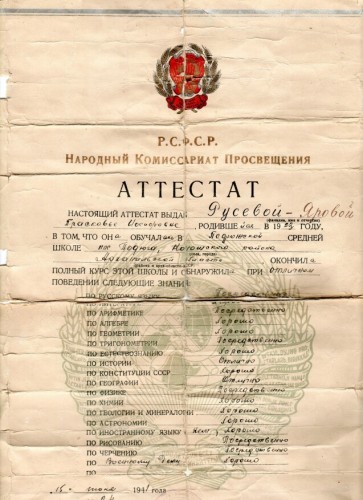 Р.С.Ф.С.Р.
НАРОДНЫЙ КОМИССАРИАТ ПРОСВЕЩЕНИЯ
АТТЕСТАТ
НАСТОЯЩИЙ АТТЕСТАТ ВЫДАН Русевой-Яровой
(фамилия, имя и отчество)
РОДИВШЕЙСЯ В 19 ГОДУ,
В ТОМ, ЧТО ОНА ОБУЧАЛАСЬ В СРЕДНЕЙ
ШКОЛЕ района
ОКОНЧИЛА
ПОЛНЫЙ КУРС ЭТОЙ ШКОЛЫ И ОБНАРУЖИЛА ПРИ отличном
ПОВЕДЕНИИ СЛЕДУЮЩИЕ ЗНАНИЯ:
ПО РУССКОМУ ЯЗЫКУ
ПО
ПО АРИФМЕТИКЕ Посредственно
ПО АЛГЕБРЕ Хорошо
ПО ГЕОМЕТРИИ Хорошо
ПО ТРИГОНОМЕТРИИ Посредственно
ПО ЕСТЕСТВОЗНАНИЮ Хорошо
ПО ИСТОРИИ Отлично
ПО КОНСТИТУЦИИ СССР Хорошо
ПО ГЕОГРАФИИ Отлично
ПО ФИЗИКЕ Посредственно
ПО ХИМИИ Хорошо
ПО ГЕОЛОГИИ И МИНЕРАЛОГИИ Хорошо
ПО АСТРОНОМИИ Хорошо
ПО ИНОСТРАННОМУ ЯЗЫКУ Хорошо
ПО РИСОВАНИЮ Посредственно
ПО ЧЕРЧЕНИЮ Посредственно
ПО Военному делу Хорошо
ПО
1941 года